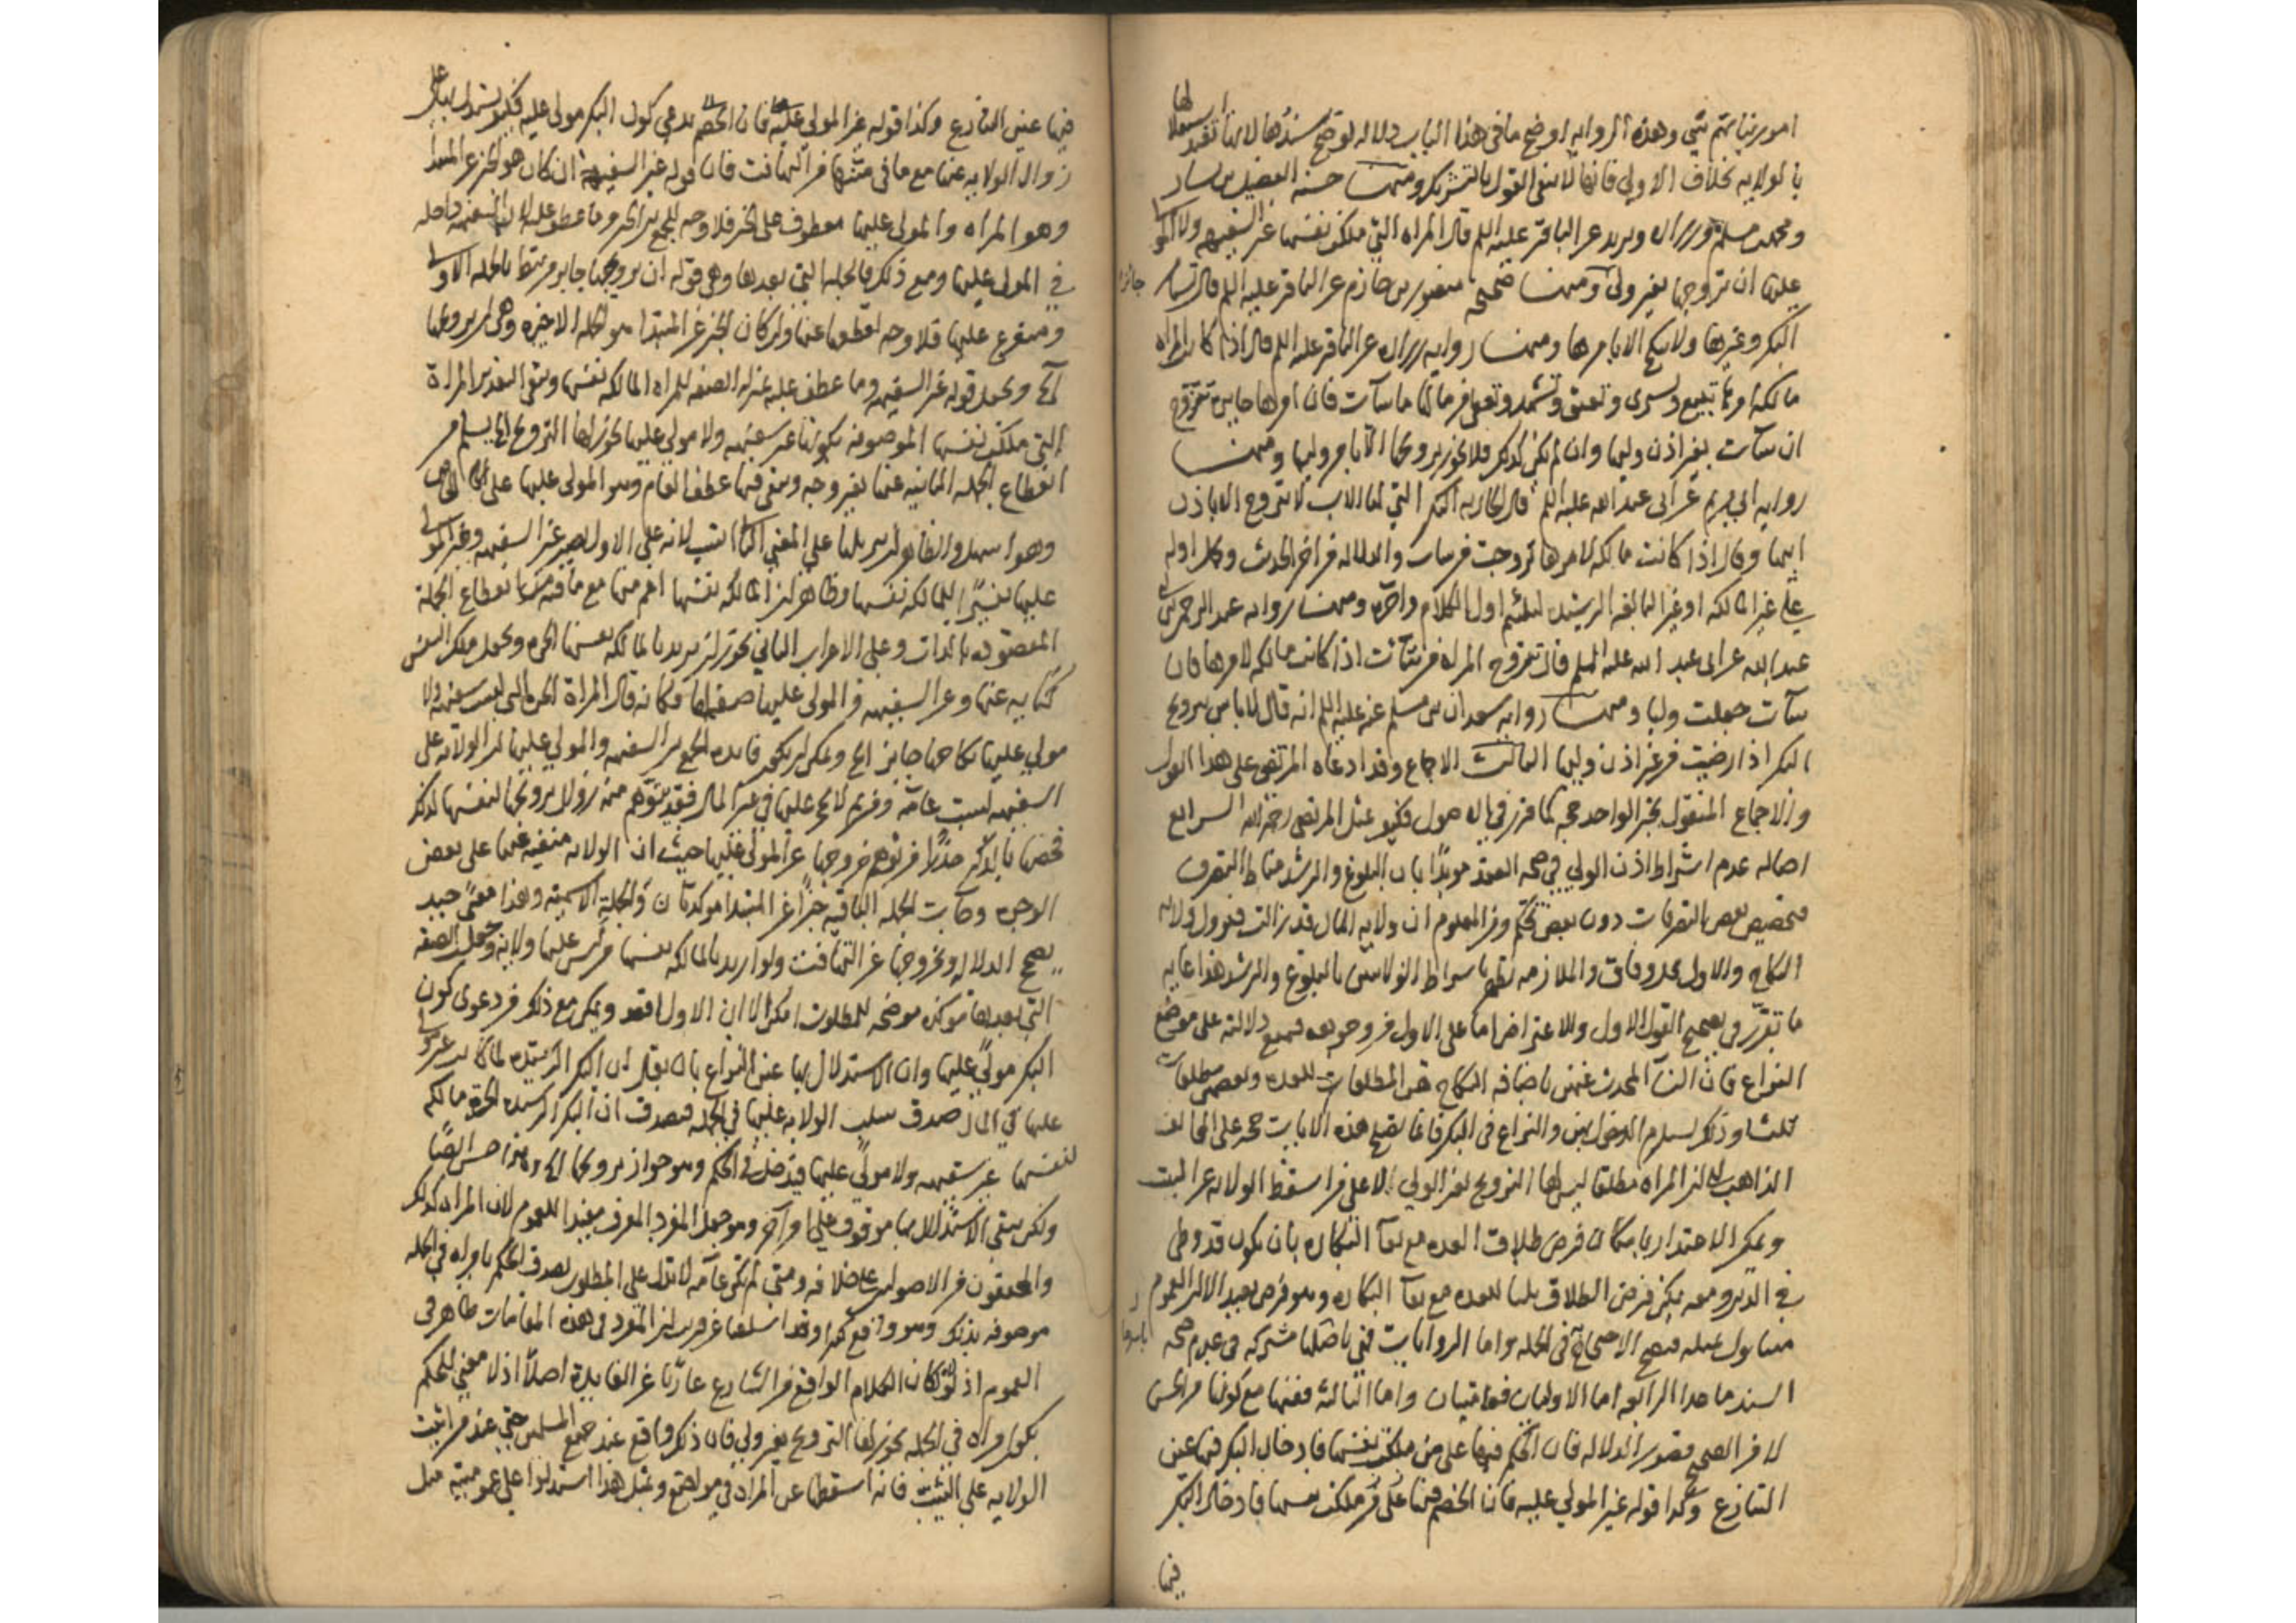 امورتناتهم شي وهذه الرواية اوضح ما في هذا الباب دلالة لو صح سندها لانها تفيد استقلالها
بالولاية بخلاف الاولى فانها لا تنفي القول بالتشريك ومنها حسنة الفضيل بن يسار
ومحمد بن مسلم وزراره وبريد عن الباقر عليه السلم قال المراه التي ملكت نفسها غير السفيهه ولا المولى
عليها ان تزويجها بغير ولي جائز ومنها صحيحة منصور بن حازم عن الباقر عليه السلم قال تستامر
البكر وغيرها ولا تنكح الا بامرها ومنها رواية زراره عن الباقر عليه السلم قال اذا كانت المراه
مالكة امرها تبيع وتشتري وتعتق وتشهد وتعطي من مالها ما شآت فان امرها جايز تتزوج
ان شآت بغير اذن وليها وان لم تكن كذلك فلا يجوز تزويجها الا بامر وليها ومنها
رواية ابي مريم عن ابي عبد الله عليه السلم قال الجارية البكر التي لها الاب لا تتزوج الا باذن
ابيها وقال اذا كانت مالكة لامرها تزوجت من شات والدلاله من اخر الحديث وحمل اوله
على غير المالكه او غير البالغه الرشيد ليلتئم اول الكلام واخره ومنها رواية عبد الرحمن بن ابي
عبد الله عن ابي عبد الله عليه السلم قال تتزوج المراه من شآئت اذا كانت مالكه لامرها فان
شآت جعلت وليا ومنها رواية سعدان بن مسلم عنه عليه السلم انه قال لا باس بتزويج
البكر اذا رضيت من غير اذن وليها الثالث الاجماع وقد ادعاه المرتضى على هذا القول
والاجماع المنقول بخبر الواحد حجه كما قرر في الاصول فكيف بمثل المرتضى رحمه الله الرابع
اصاله عدم اشتراط اذن الولي في صحه العقد مويدا بان البلوغ والرشد مناط التصرف
فتخصيص بعض التصرفات دون بعض تحكم ومن المعلوم ان ولاية المال قد زالت فتزول ولايه
النكاح والاول محل وفاق والملازمه تظهر باشتراط الولايتين بالبلوغ والرشد هذا غايه
ما تقرر في تصحيح القول الاول وللاعتراض اما على الاول فمن وجوه منع دلالته على موضع
النزاع فان النسآ المحدث عنهن باضافه النكاح هن المطلقات للعده وبعضهن مطلقات
ثلثا وذلك يستلزم الدخول بهن والنزاع في البكر فانما تصلح هذه الايات حجه على المخالف
الذاهب الى ان المراه مطلقا ليس لها التزويج بغير الولي لا على من اسقط الولايه عن الثيب
ويمكن الاعتذار بامكان فرض طلاق العده مع بقآ البكاره بان يكون قد وطى
في الدبر ومعه يمكن فرض الطلاق ثلثا للعده مع بقآ البكاره وهو فرض بعيد الا ان العموم
متناول لمثله فيصح الاحتجاج بها في الجمله واما الروايات فهي باصلها مشتركه في عدم صحه
السند ما عدا الرابعه اما الاوليان فعاميتان واما الثالثه ففيها مع كونها من الحسن
لا من الصحيح قصور الدلاله فان الحكم فيها على من ملكت نفسها فادخال البكر فيها عين
التنازع وكذا قوله غير المولى عليها فان الخصم فيها على من ملكت نفسها فادخال البكر
فيها
فيها عين التنازع وكذا قوله غير المولى عليها فان الخصم يدعي كون البكر مولى عليه فكيف يستدل به على
زوال الولايه عنها مع ما في متنها من التهافت فان قوله غير السفيهة ان كان هو الخبر عن المبتدا
وهو المراه والمولى عليها معطوف على الخبر فلا وجه للجمع بين الخبر وما عطف عليه لان السفيهه داخله
في المولى عليها ومع ذلك فالجمله التي بعدها وهي قوله ان تزويجها جايز مرتبط بالجمله الاولى
ومتفرع عليها فلا وجه لقطعها عنها وان كان الخبر عن المبتدا هو الجمله الاخيره وهي ان تزويجها
آلخ ويجعل قوله غير السفيهه وما عطف عليه بمنزله الصفه للمراه المالكه نفسها ويبقى التقدير المراة
التي ملكت نفسها الموصوفه بكونها غير سفيهه ولا مولى عليها يجوز لها التزويج الخ يسلم من
انقطاع الجمله الثانيه عنها بغير وجه ويبقى فيها عطف العام وهو المولى عليها على الخاص
وهو اسهل والظاهر ان بناها على المعنى الثاني انسب لانه على الاول يصير غير السفيهه وغير المولى
عليها تفسيرا للمالكه نفسها وظاهر ان المالكه نفسها اعم منها مع ما فيه من انقطاع الجملة
المقصوده بالذات وعلى الاعراب الثاني يجوز ان يريد بالمالكه نفسها الحره ويجعل ملك النفس
كنايه عنها وغير السفيهه والمولى عليها صفه لها فكانه قال المراة الحره التي ليست سفيهه ولا
مولى عليها نكاحها جايز الخ ويمكن ان يكون فايده الجمع بين السفيهه والمولى عليها ان الولايه على
السفيهه ليست عامه ومن ثم لا حجر عليها في غير المال فقد يتوهم منه زوال تزويجها لنفسها لذلك
فخصها بالذكر حذرا من توهم خروجها عن المولى عليها حيث ان الولايه منفيه عنها على بعض
الوجوه وكانت الجمله الباقيه خبرا عن المبتدا موكدة بان والجملة الاسميه وهذا معنى جيد
يصحح الدلاله ويخرجها عن التهافت ولو اريد بالمالكه نفسها من ليس عليها ولاية وتجعل الصفه
التي بعدها موكده موضحه للمطلوب امكن الا ان الاول اقعد ويمكن مع ذلك من دعوى كون
البكر مولى عليها وان الاستدلال بها عين النزاع بان يقال ان البكر الرشيده لما كانت غير مولى
عليها في المال صدق سلب الولايه عليها في الجمله فيصدق ان البكر الرشيده الحرة مالكه
لنفسها غير سفيهه ولا مولى عليها فيدخل في الحكم وهو جواز تزويجها الخ وهذا حسن ايضا
ولكن يبقى الاستدلال بها موقوف على امر آخر وهو جعل المفرد المعرف مفيدا للعموم لان المراه كذلك
والمحققون من الاصوليين على خلافه ومتى لم تكن عامه لا تدل على المطلوب لصدق الحكم بامراه في الجمله
موصوفه بذلك وهو واقع كثيرا وقد اسلفنا عن قريب ان المفرد في هذه المقامات ظاهر في
العموم اذ لولاه لكان الكلام الواقع من الشارع عاريا عن الفايدة اصلا اذ لا معنى للحكم
بكون مراه في الجمله يجوز لها التزويج بغير ولي فان ذلك واقع عند جميع المسلمين حتى عند من اثبت
الولايه على الثيب فانه اسقطها عن المراه في مواضع وبمثل هذا استدلوا على عموميته مثل